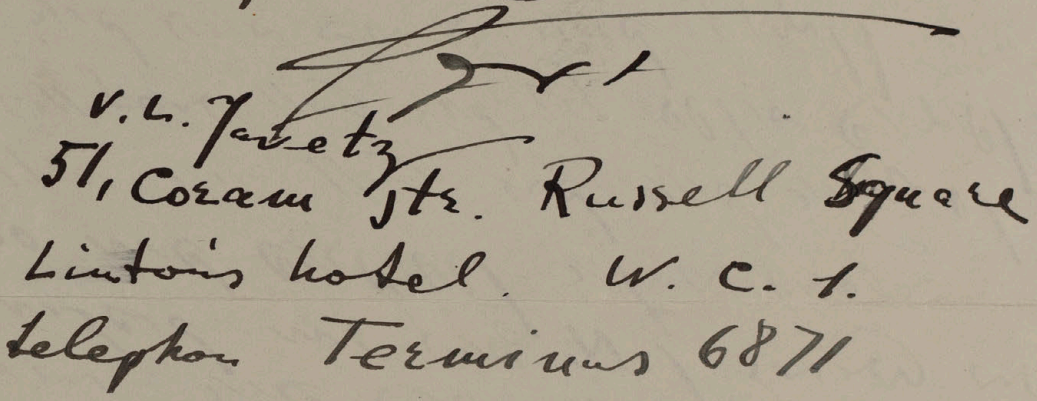 V. L. Yavetz
51, Coram str. Russell Square
Linton's hotel. W. C. 1.
telephon Terminus 6871